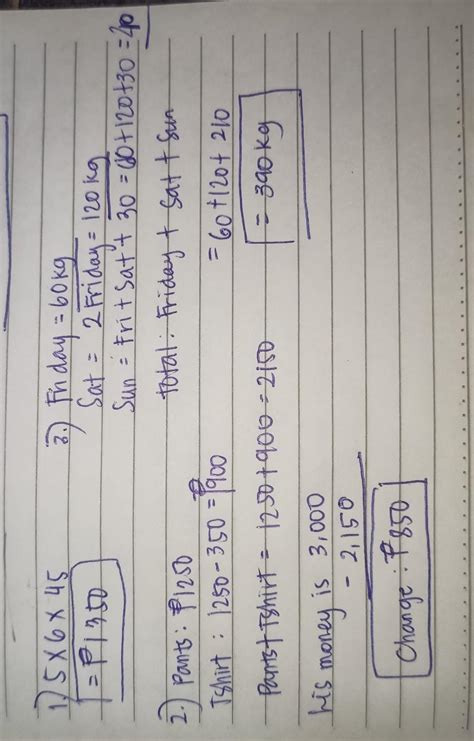 1.) 5 x 6 x 45
= ₱1350
2.) Pants: ₱1250
Tshirt: 1250 - 350 = ₱900
Pants + Tshirt = 1250 + 900 = 2150
his money is 3,000
- 2,150
Change: ₱850
3.) Friday = 60kg
Sat = 2 Friday = 120kg
Sun = Fri + Sat + 30 = 60 + 120 + 30 = 210
total: Friday + Sat + Sun
= 60 + 120 + 210
= 390 kg